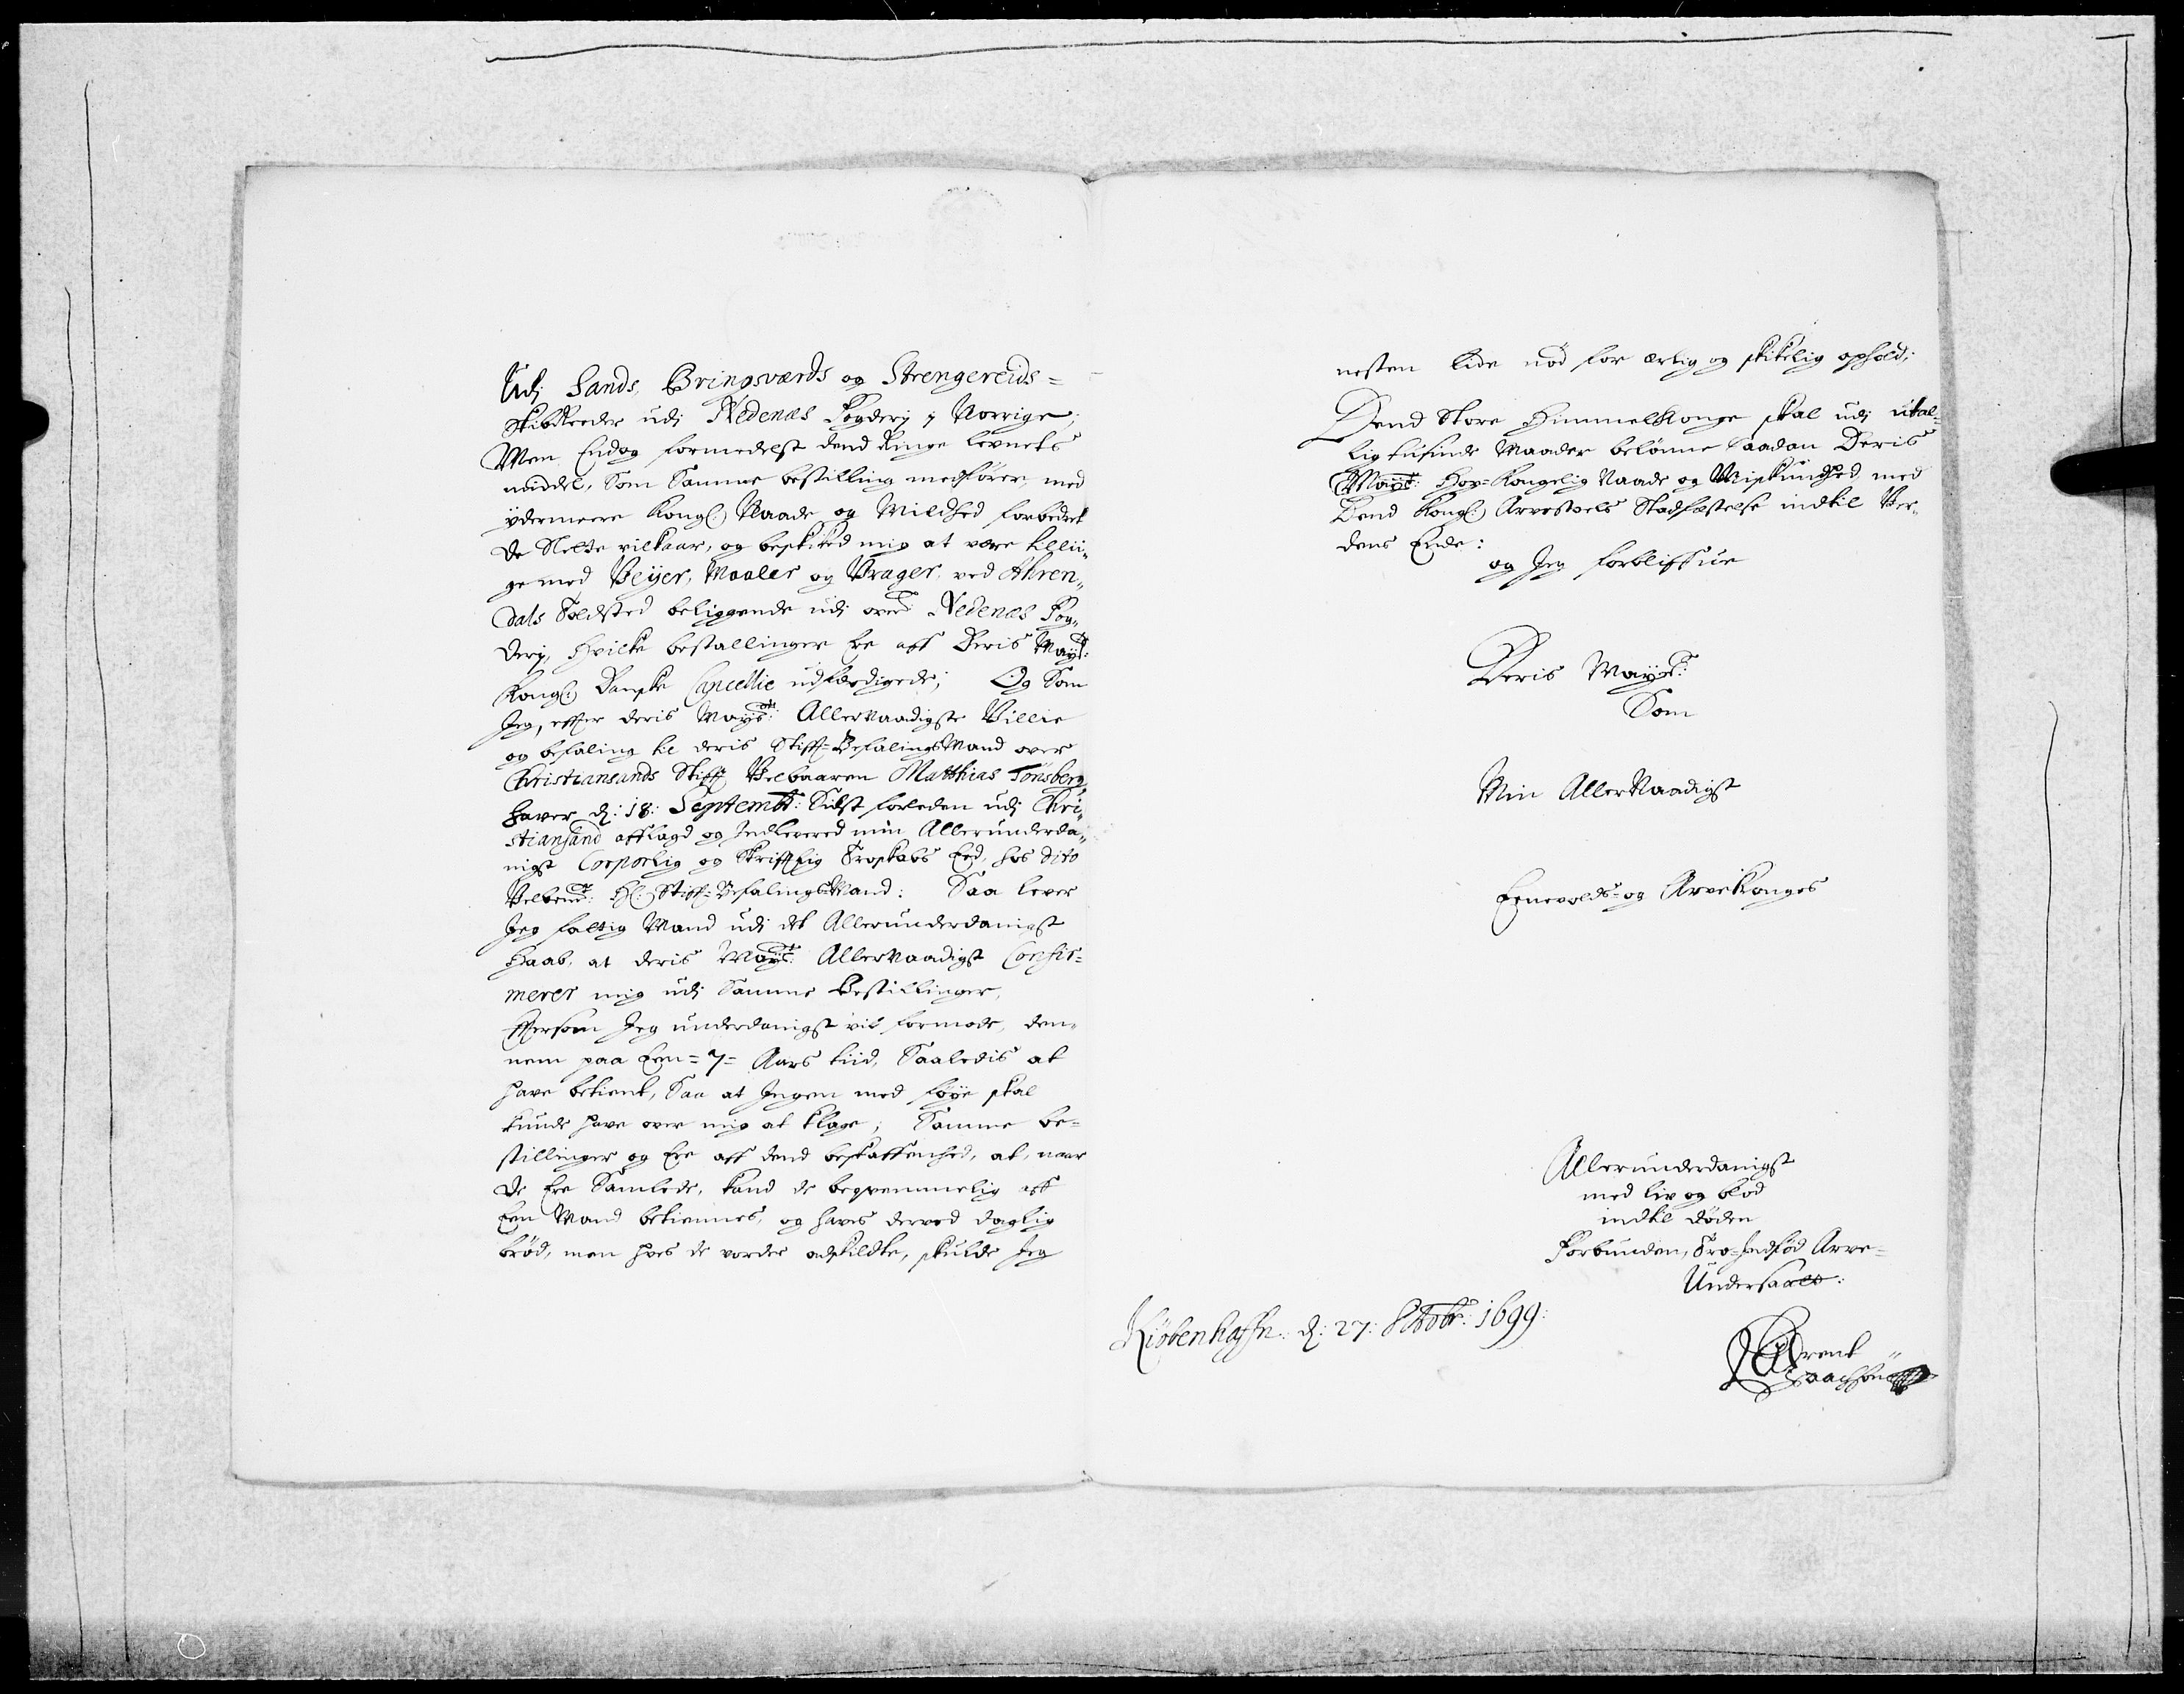 Udj Sands, Bringsværds og Strengereids=
Skibreeder udj Nedenæs Fogderj i Norrige;
Men Endog formedelst dend Ringe levnets
middel, Som Samme bestilling medfører, med
ydermeere Kongl: Naade og Mildhed forbedret
de Slette vilkaar, og beskiked mig at være tillii„
ge med Veÿer, Maaler og Vrager, ved Ahren„
dals Toldsted beliggende udi ovenbte Nedenæs Fog„
derj, hvilke bestallinger Ere aff Deris Maÿts:
Kongl: Danske Cancellie udfærdigede; Og Som
Jeg, efter deris Maÿts: AllerNaadigste Villie
og befaling til deris Stift=BefalingsMand over
Christiansands Stift Velbaaren Matthias Tönsberg,
haver d: 18: Septembr: Sidst forleden udj Chri„
stiansand afflagd og Indlevered min Allerunderda„
nigst Corporlig og Skrifftlig Troskabs Eed, hos dito
Velbemte: Hl: Stift=BefalingsMand: Saa lever
Jeg fattig Mand udi det Allerunderdanigst
Haab, at deris Maÿts: AllerNaadigst Confir=
merer mig udj Samme Bestillinger,
Efftersom Jeg underdanigst vil formode, den„
nem paa Een=7= Aars tiid, Saaledis at
have betient, Saa at Ingen med føÿe skal
kunde have over mig at klage; Samme be=
stillinger og Ere aff dend beskaffenhed, at, naar
de Ere Samlede, kand de beqvemmelig aff
Een Mand betiennes, og haves derved daglig
brød, men hvis de vorder adskildte, skulde Jeg
nesten lide nød for ærlig og skikelig ophold;
Dend Store HimmelKonge skal udj utal=
lig tusinde Maader belønne Saadan Deris
Maÿts: Høy=Kongelig Naade og Miskundhed med
Dend Kongl: Arvestoels Stadfæstelse indtil Ver„
dens Ende:
og Jeg forbliffue
Deris Maÿts:
Som
Min AllerNaadigst
Eenevolds= og ArveKonges
Allerunderdanigst
med liv og blod
indtil døden
Forbunden, Tro=Indfød Arve=
Undersaatt:
Kiøbenhaffn: d: 27: Octobr: 1699:
Arent
Isaachsøn